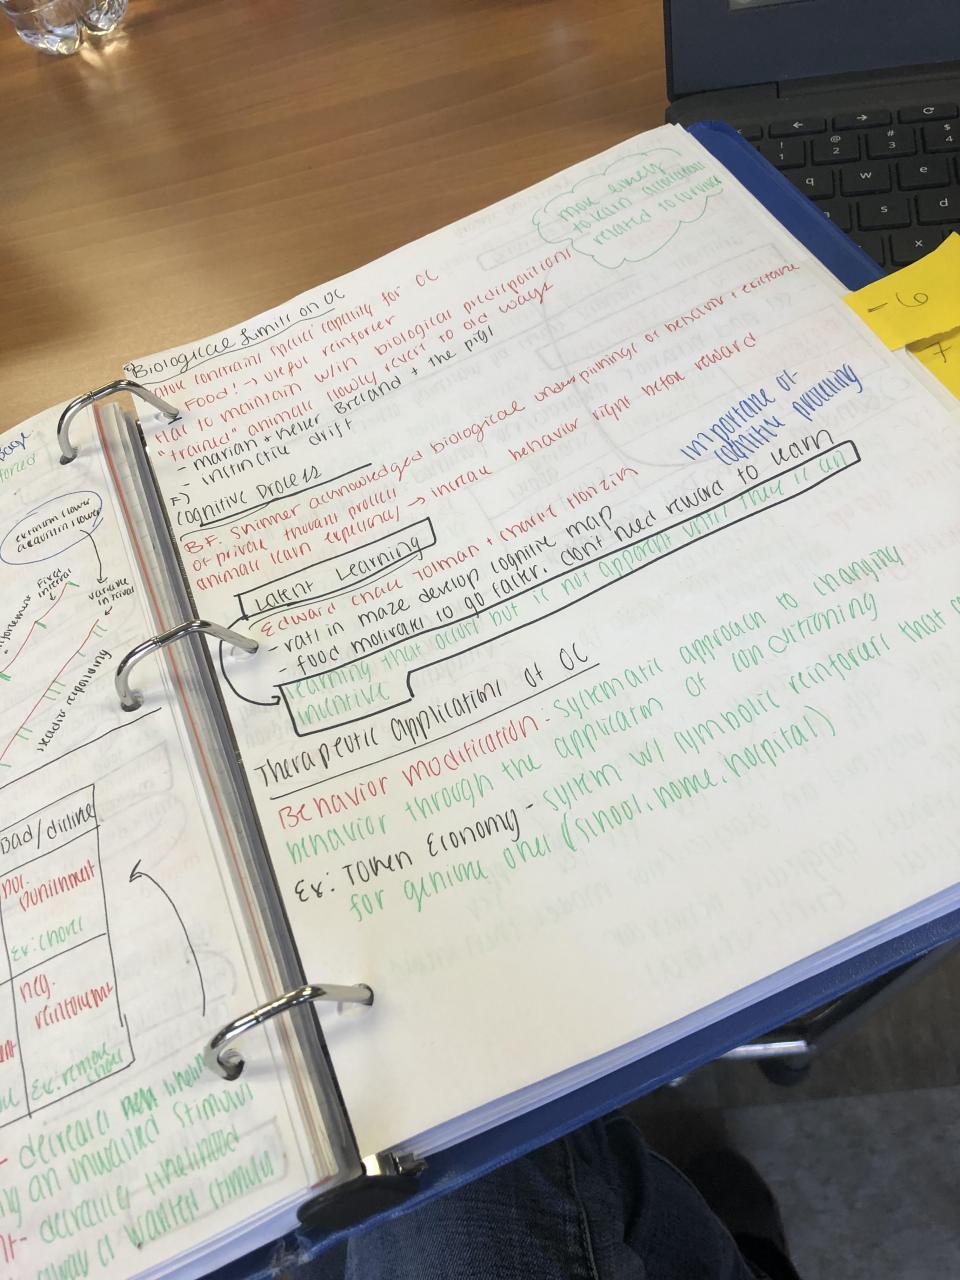 more likely
to learn associations
related to survival
E) Biological Limits on OC
have constraints species' capability for OC
Food! → useful reinforcer
Hat to maintain w/in biological predispositions
"trained" animals slowly revert to old ways
- marian + Keller Breland + the pigs
- instinctive drift
F) Cognitive Process
B.F. Skinner acknowledged biological underpinnings of behavior + existence
of private thought process
animals learn expectancy → increase behavior right before reward
importance of
cognitive processing
Latent Learning
Edward Chase Tolman + Charlie Honzin
- rats in maze develop cognitive map
- food motivates to go faster. dont need reward to learn
learning that occurs but is not apparent until there is an
incentive
Therapeutic Applications of OC
Behavior modification - systematic approach to changing
behavior through the application of OC conditioning
Ex: Token Economy - system w/ symbolic reinforcers that
for genuine ones (school, home, hospital)
extinction slower
acquisition slower
fixed
interval
variable
interval
steadier responding
Bad/dislike
pos.
punishment
Ex: chores
neg.
reinforcement
Ex: remove
chores
decreases
an unwanted stimuli
decreasing likelihood
away a wanted stimuli
= 6
7
! 1
@ 2
# 3
$ 4
q
w
e
s
d
x